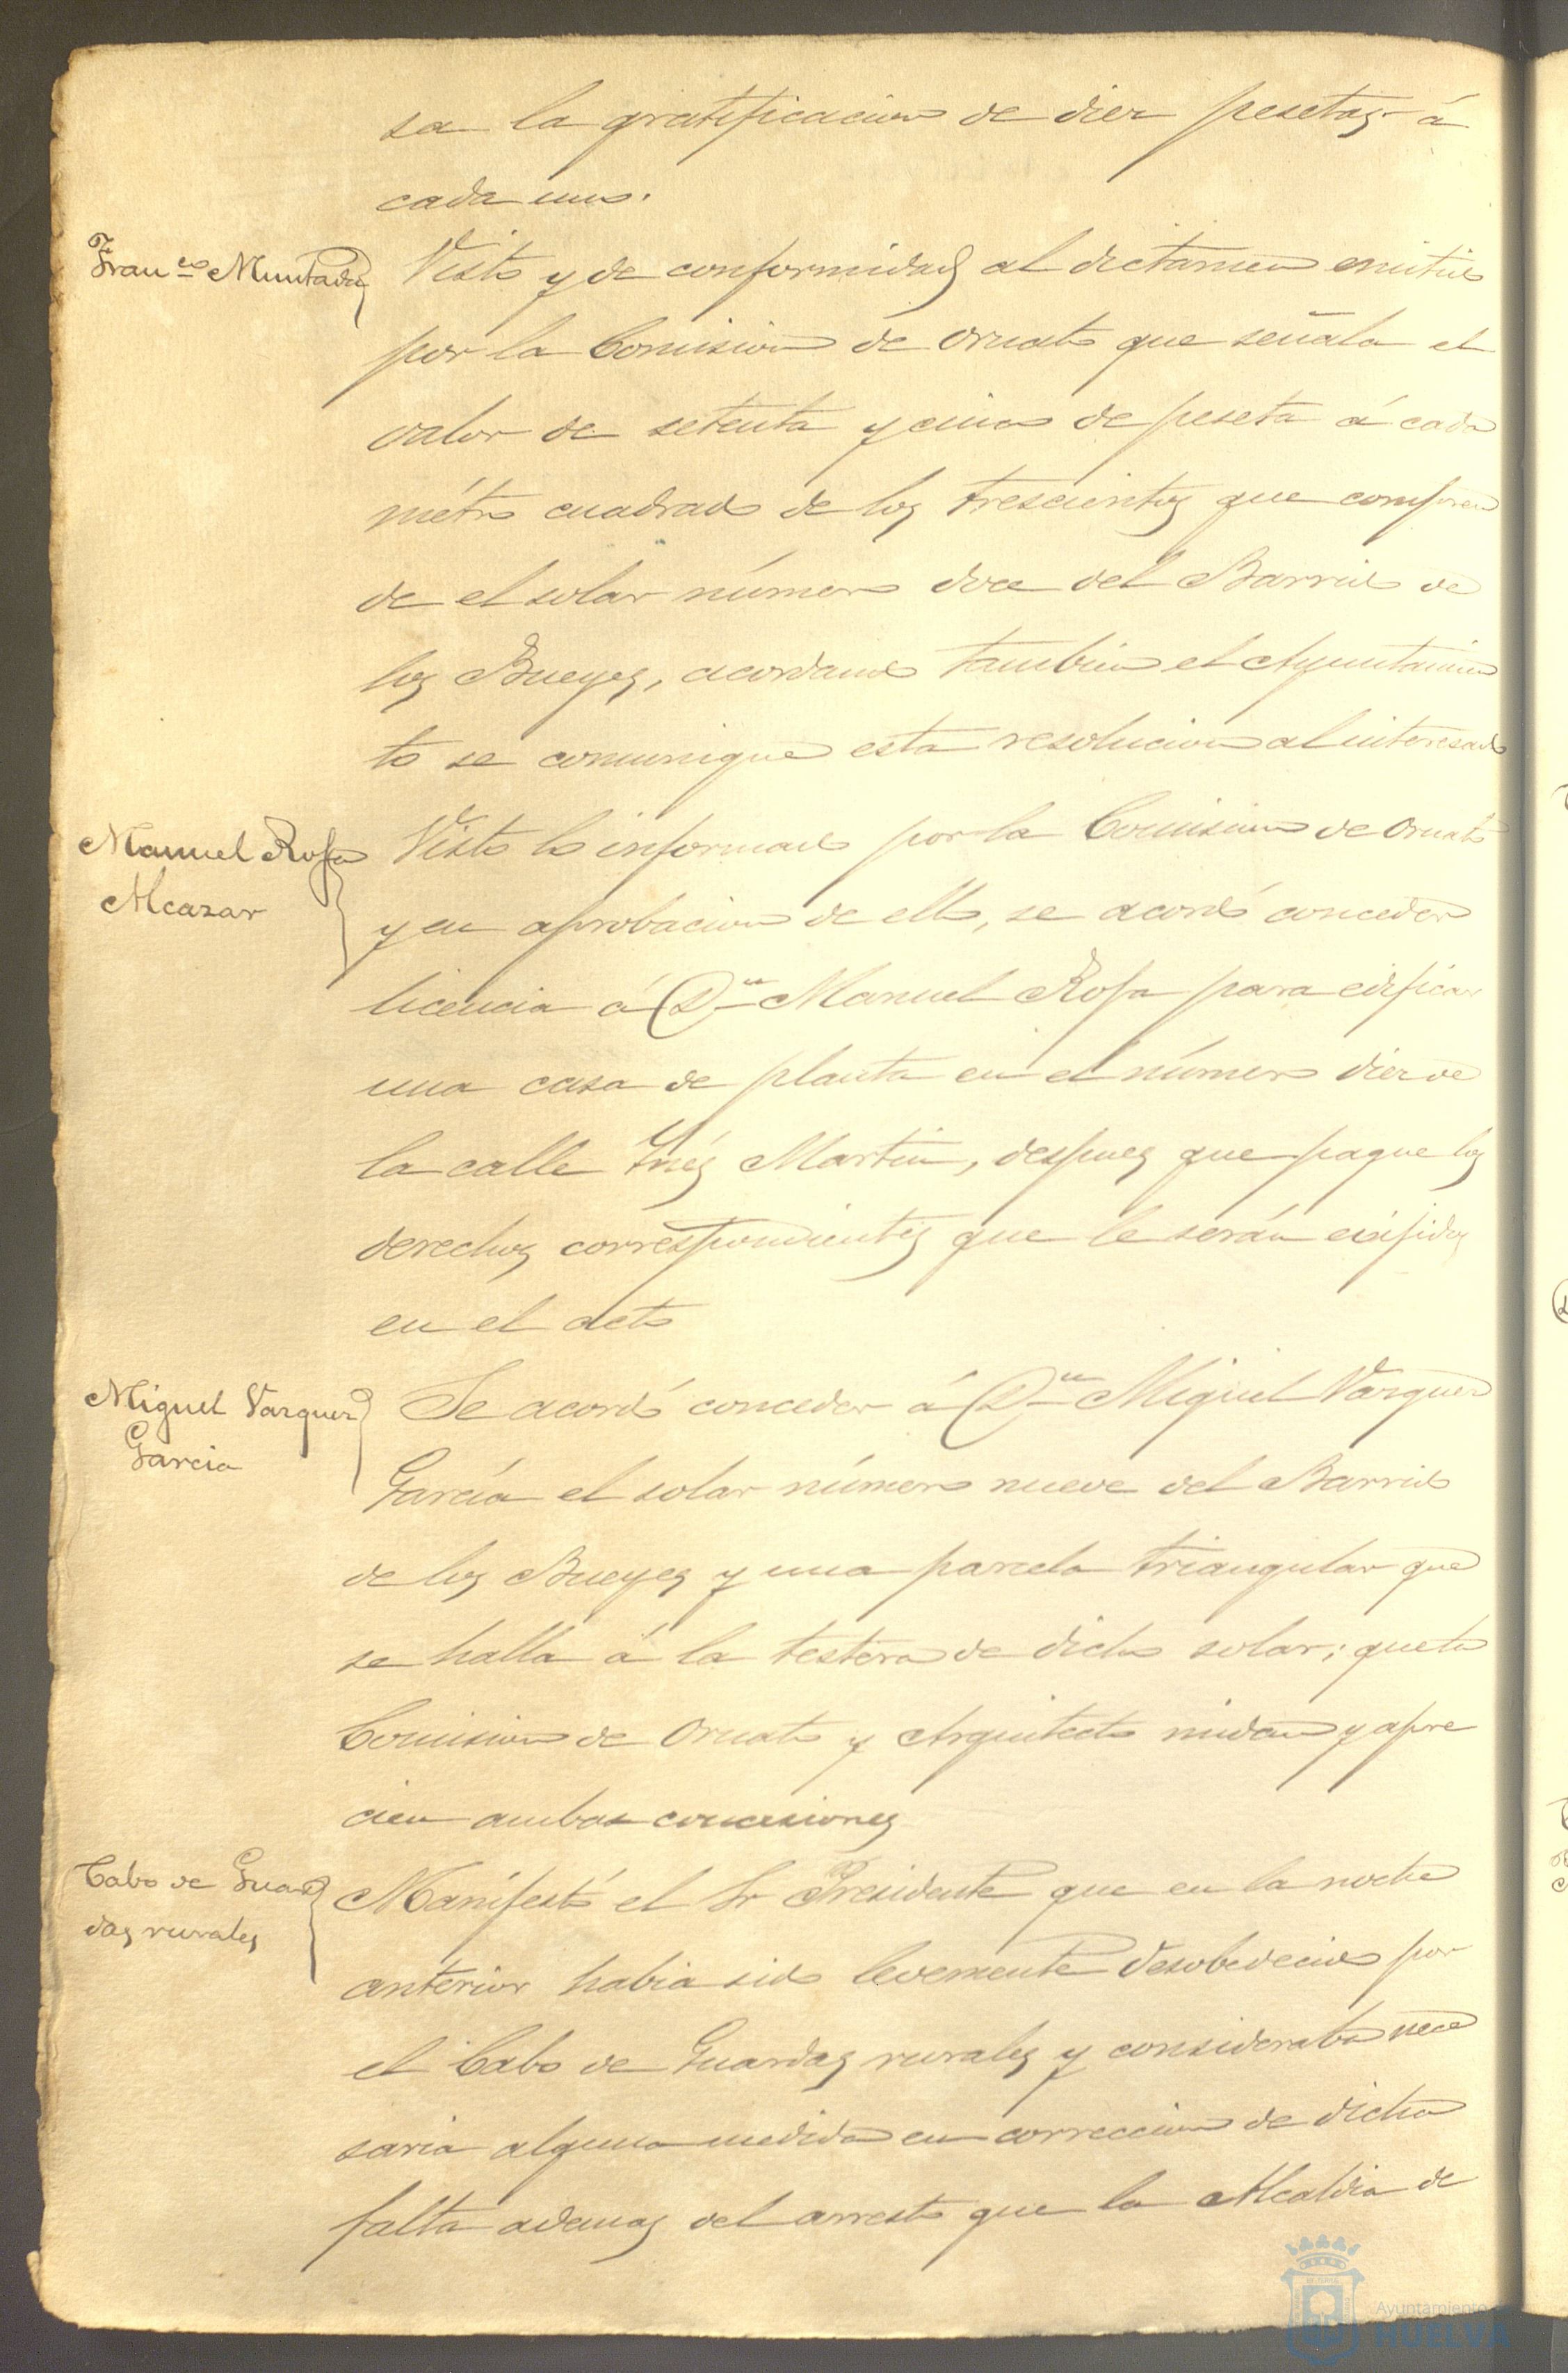 sa la gratificacion de diez pesetas á
cada uno.
Fran.co Muntada
Visto y de conformidad al dictamen emitido
por la Comision de Ornato que señala el
valor de setenta y cinco de peseta á cada
métro cuadrado de los trescientos que compren
de el solar número doce del Barrio de
los Bueyes, acordando tambien el Ayuntamien
to se comunique esta resolucion al interesado
Manuel Rofa
Alcazar
Visto lo informado por la Comision de Ornato
y en aprobacion de ello, se acordó conceder
licencia á Dn Manuel Rofa para edificar
una casa de planta en el número diez de
la calle Inés Martin, despues que pague los
derechos correspondientes que le serán exijidos
en el acto
Miguel Vazquez
Garcia
Se acordó conceder á Dn Miguel Vazquez
García el solar número nueve del Barrio
de los Bueyes y una parcela triangular que
se halla á la testera de dicho solar; que la
Comision de Ornato y Arquitecto midan y apre
cien ambas concesiones
Cabo de Guar
das rurales
Manifestó el Sr Presidente que en la noche
anterior habia sido levemente desobedecido por
el Cabo de Guardas rurales y consideraba nece
saria alguna medida en correccion de dicha
falta ademas del arresto que la Alcaldia de
Ayuntamiento
HUELVA